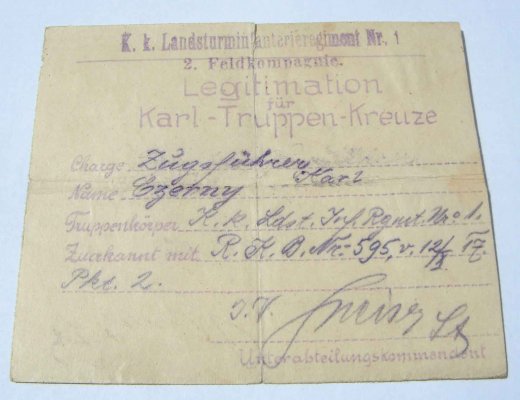 K. k. Landsturminfanterieregiment Nr. 1
2. Feldkompagnie.
Legitimation
für
Karl-Truppen-Kreuze
Charge Zugsführer
Name Czerny Karl
Truppenkörper K. k. Ldst. Inf. Rgmt. No 1.
Zuerkannt mit R. K. B. Nr. 595, v. 12/
Pkt. 2.
I. V.
Unterabteilungskommandant